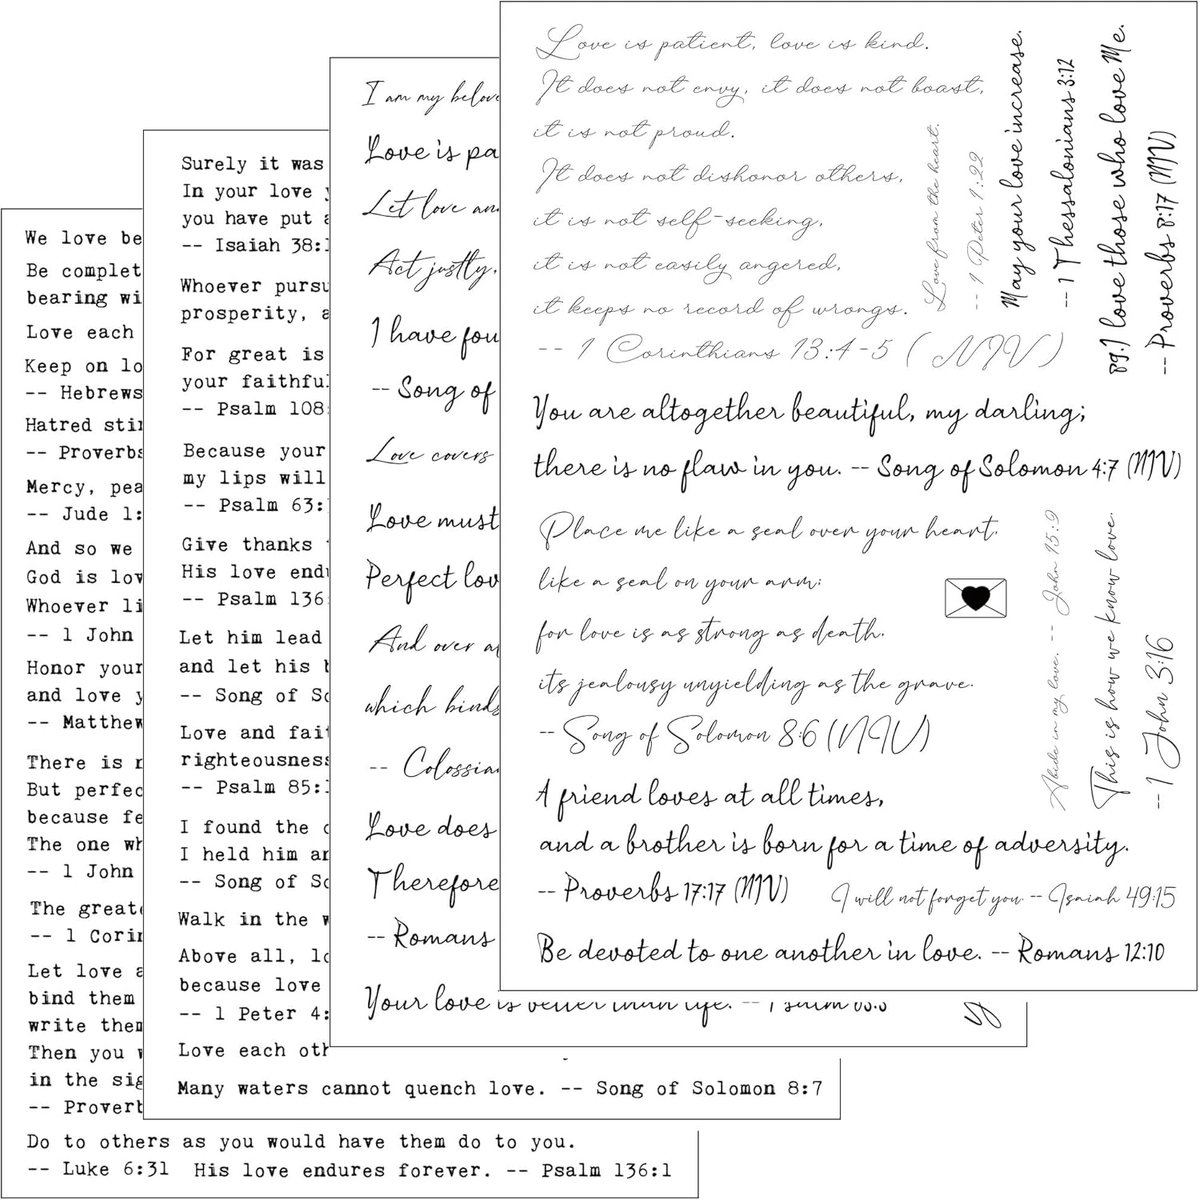 Love is patient, love is kind.
It does not envy, it does not boast,
it is not proud.
It does not dishonor others,
it is not self-seeking,
it is not easily angered,
it keeps no record of wrongs.
-- 1 Corinthians 13:4-5 ( NIV )
Love from the heart.
-- 1 Peter 1:22
May your love increase.
-- 1 Thessalonians 3:12
89.I love those who love Me.
-- Proverbs 8:17 (NIV)
You are altogether beautiful, my darling;
there is no flaw in you. -- Song of Solomon 4:7 (NIV)
Place me like a seal over your heart,
like a seal on your arm;
for love is as strong as death,
its jealousy unyielding as the grave.
-- Song of Solomon 8:6 (NIV)
Abide in my love. -- John 15:9
This is how we know love.
-- 1 John 3:16
A friend loves at all times,
and a brother is born for a time of adversity.
-- Proverbs 17:17 (NIV)
I will not forget you -- Isaiah 49:15
Be devoted to one another in love. -- Romans 12:10
I am my belov
Love is pa
Let love an
Act justly,
I have fou
-- Song of
Love covers
Love must
Perfect lov
And over a
which binds
-- Colossia
Love does
Therefore
-- Romans
Your love is better than life. -- Psalm 63:3
y
Surely it was
In your love y
you have put a
-- Isaiah 38:1
Whoever pursu
prosperity, a
For great is
your faithful
-- Psalm 108:
Because your
my lips will
-- Psalm 63:
Give thanks t
His love endu
-- Psalm 136
Let him lead
and let his b
-- Song of So
Love and fait
righteousness
-- Psalm 85:1
I found the o
I held him an
-- Song of So
Walk in the w
Above all, lo
because love
-- 1 Peter 4:
Love each oth
Many waters cannot quench love. -- Song of Solomon 8:7
We love be
Be complet
bearing wi
Love each
Keep on lo
-- Hebrews
Hatred stir
-- Proverbs
Mercy, pea
-- Jude 1:
And so we
God is lov
Whoever li
-- 1 John
Honor your
and love y
-- Matthew
There is n
But perfec
because fe
The one wh
-- 1 John
The greate
-- 1 Corin
Let love a
bind them
write them
Then you w
in the sig
-- Proverb
Do to others as you would have them do to you.
-- Luke 6:31 His love endures forever. -- Psalm 136:1